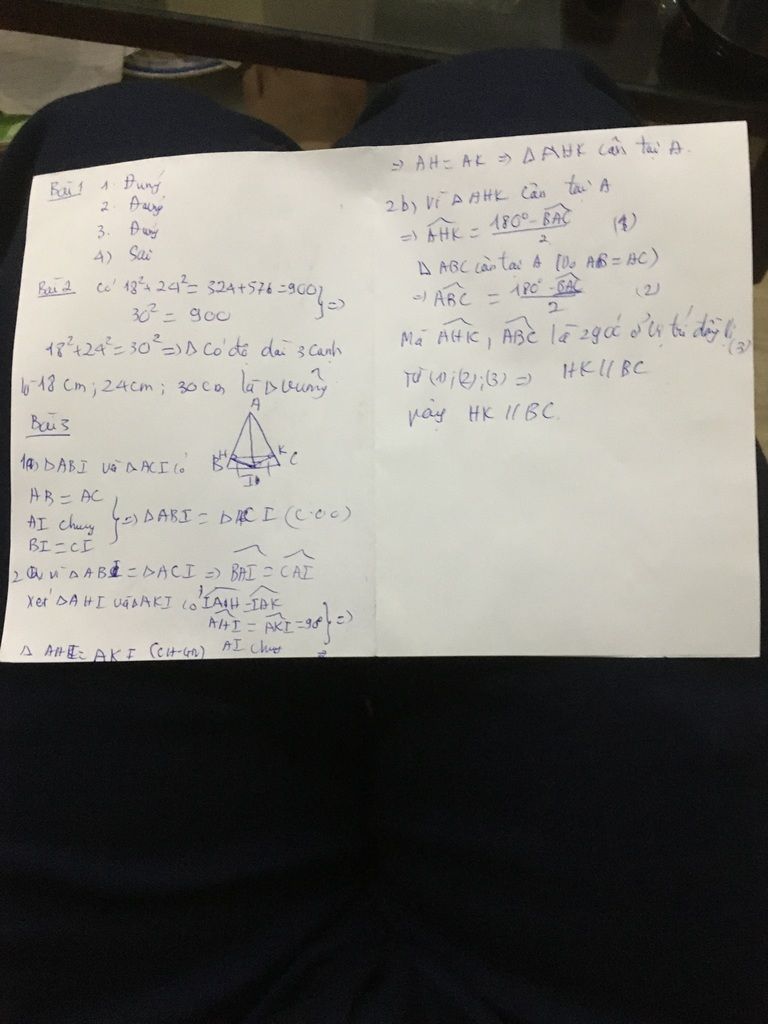 Bài 1 1. Đúng
2. Đúng
3. Đúng
4) Sai
Bài 2 Có 18² + 24² = 324 + 576 = 900 } =>
30² = 900
18² + 24² = 30² => Δ Có độ dài 3 cạnh
là 18 cm ; 24cm ; 30 cm là Δ vuông
Bài 3
A
B H K C
I
1a) Δ ABI và Δ ACI có
AB = AC
AI chung } => Δ ABI = Δ ACI (c.c.c)
BI = CI
2a vì Δ ABI = Δ ACI => BAI = CAI
xét Δ AHI và Δ AKI có IAH = IAK
AHI = AKI = 90° } =>
Δ AHI = AKI (CH-GN) AI chung
=> AH = AK => Δ AHK cân tại A.
2b) Vì Δ AHK cân tại A
=> AHK = (180° - BAC)/2 (1)
Δ ABC cân tại A (Do AB = AC)
=> ABC = (180° - BAC)/2 (2)
Mà AHK, ABC là 2 góc ở vị trí đồng vị (3)
Từ (1);(2);(3) => HK // BC
vậy HK // BC.